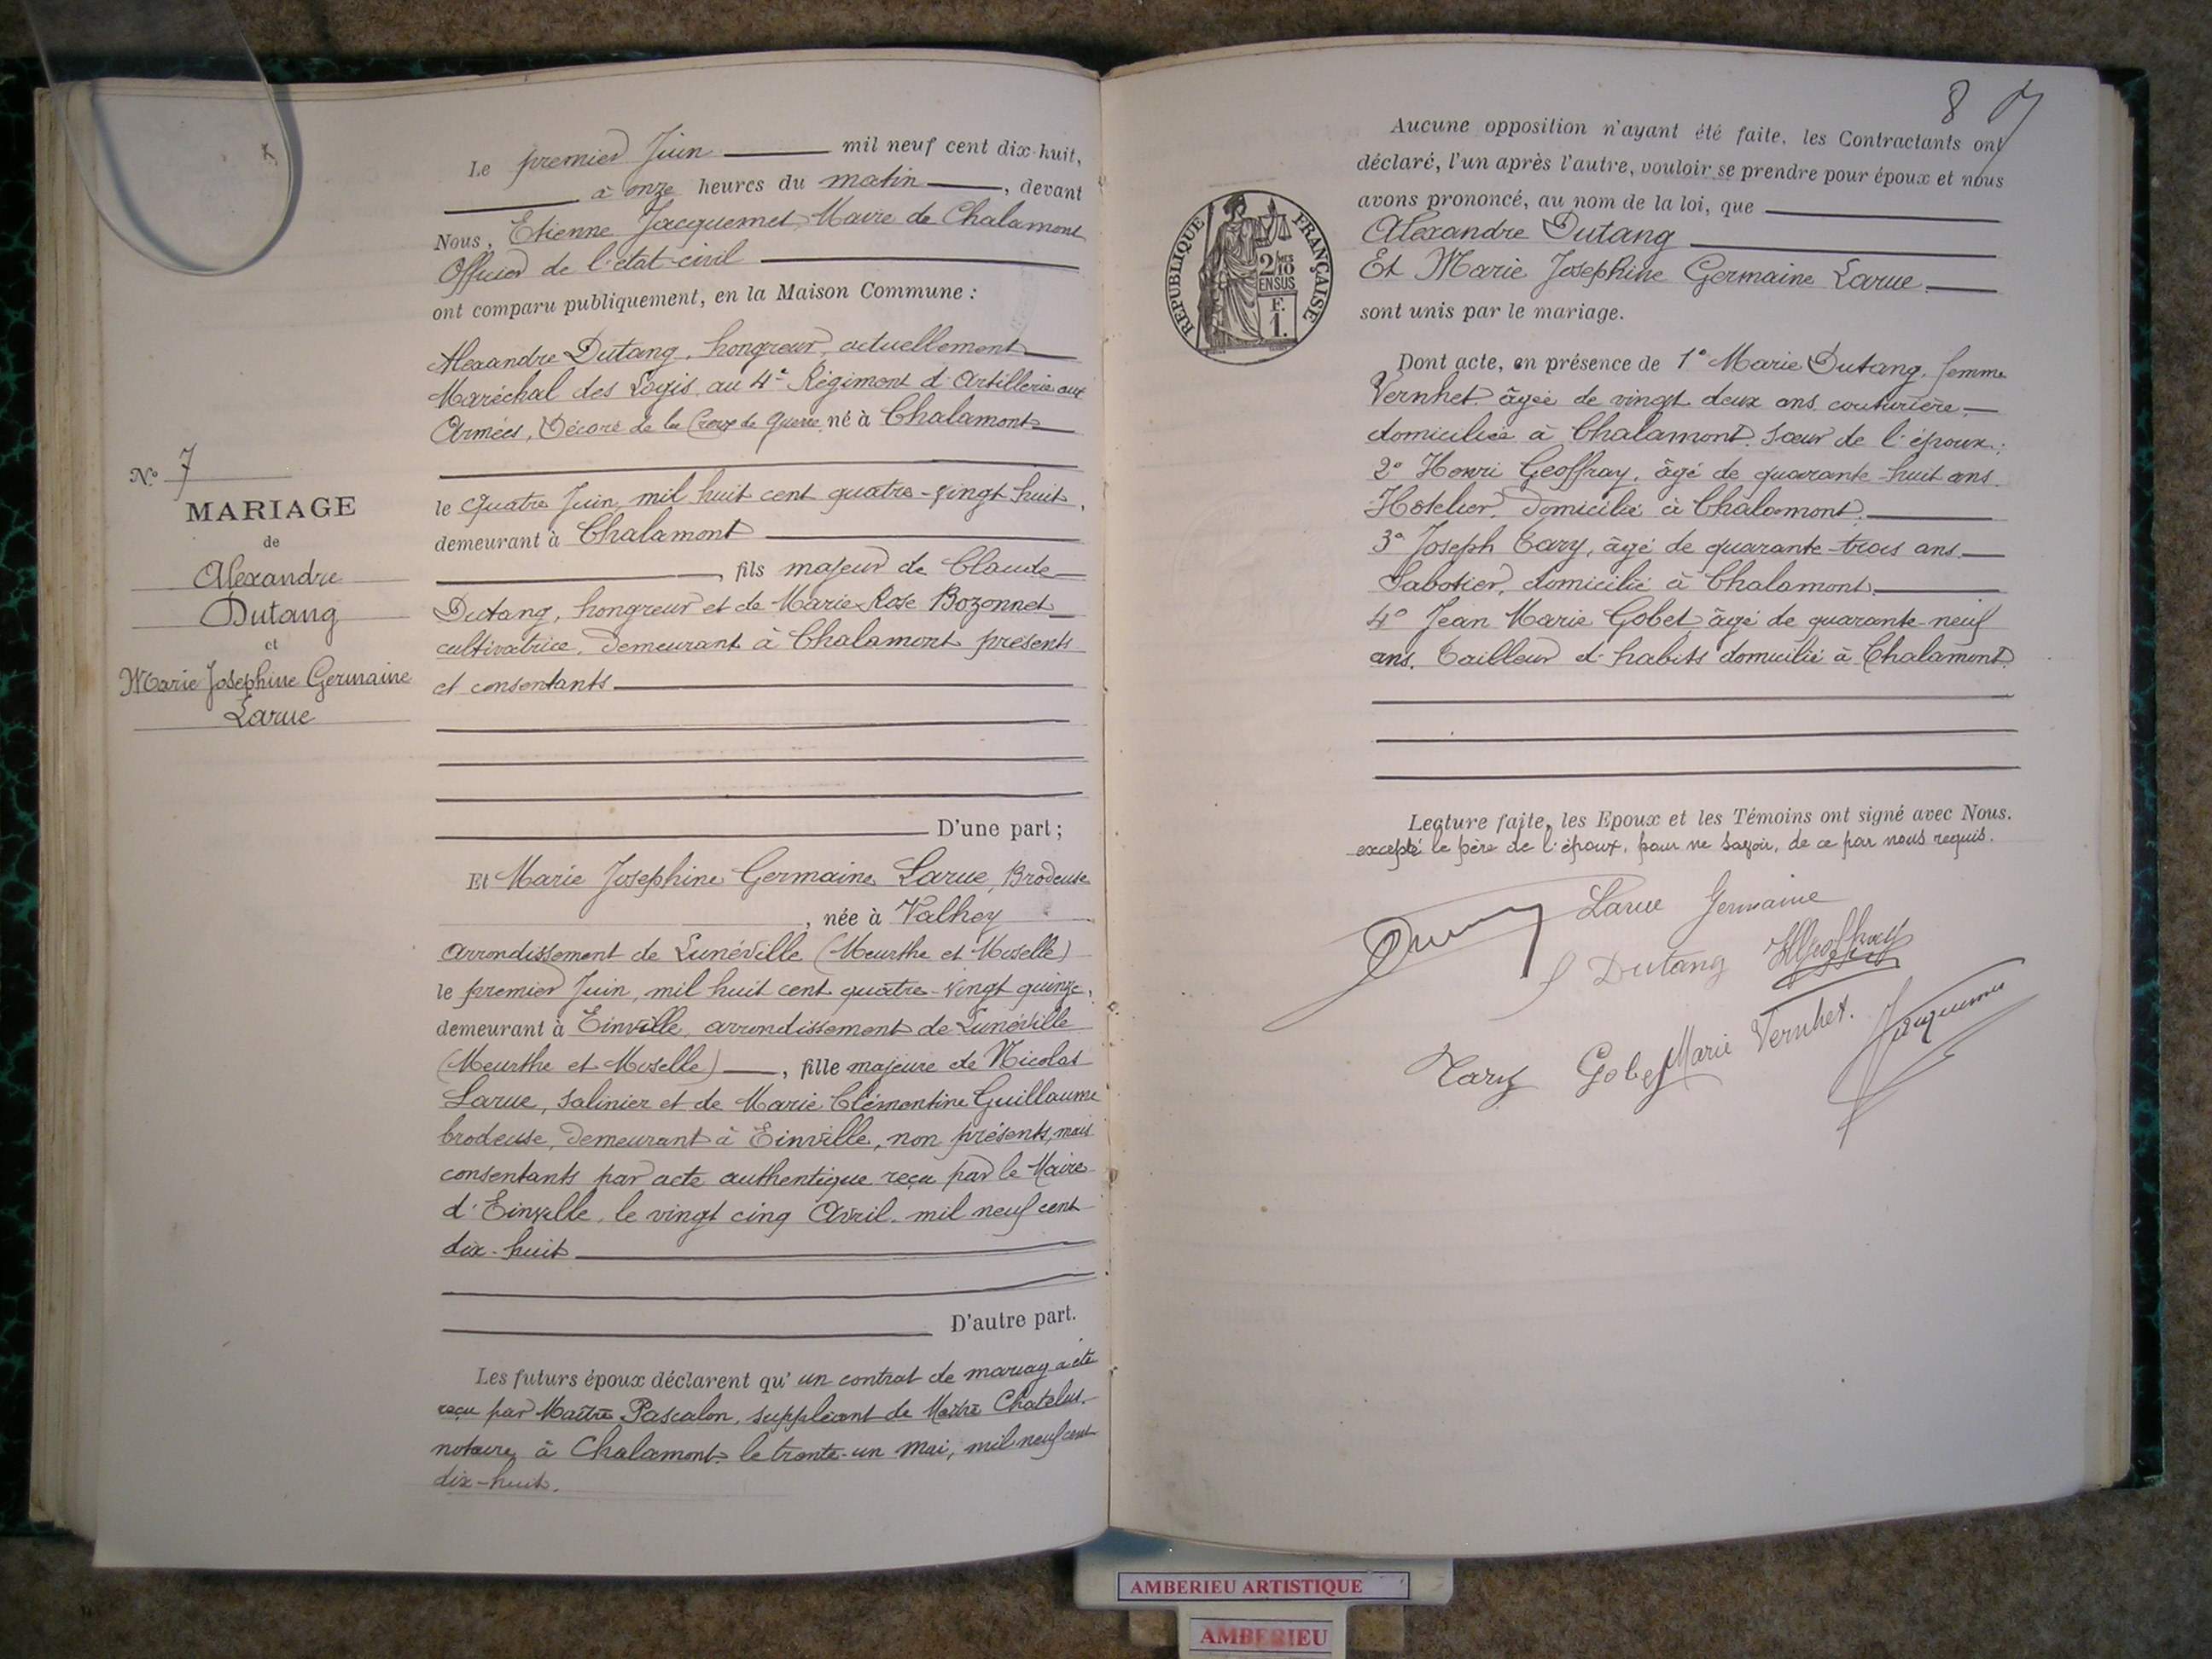 Le premier Juin mil neuf cent dix-huit,
à onze heures du matin, devant
Nous, Etienne Jacquemet, Maire de Chalamont
Officier de l'état-civil
ont comparu publiquement, en la Maison Commune :
Alexandre Dutang, hongreur, actuellement
Maréchal des Logis au 4e Régiment d'Artillerie aux
Armées, Décoré de la Croix de Guerre né à Chalamont
le Quatre Juin, mil huit cent quatre-vingt huit,
demeurant à Chalamont
, fils majeur de Claude
Dutang, hongreur et de Marie Rose Bozonnet
cultivatrice, Demeurant à Chalamont présents
et consentants
D'une part ;
Et Marie Josephine Germaine Larue, Brodeuse
, née à Valhey
arrondissement de Lunéville (Meurthe et Moselle)
le premier Juin, mil huit cent quatre-vingt quinze,
demeurant à Einville, arrondissement de Lunéville
(Meurthe et Moselle), fille majeure de Nicolas
Larue, Salinier et de Marie Clémentine Guillaume
brodeuse, Demeurant à Einville, non présents, mais
consentants par acte authentique reçu par le Maire
d'Einville, le vingt cinq Avril, mil neuf cent
dix-huit
D'autre part.
Les futurs époux déclarent qu'un contrat de mariag a été
reçu par Maître Pascalon, suppléant de Maître Chatelus,
notaire, à Chalamont le trente-un mai, mil neuf cent
dix-huit.
N° 7
MARIAGE
de
Alexandre
Dutang
et
Marie Josephine Germaine
Larue
8
Aucune opposition n'ayant été faite, les Contractants ont
déclaré, l'un après l'autre, vouloir se prendre pour époux et nous
avons prononcé, au nom de la loi, que
Alexandre Dutang
Et Marie Josephine Germaine Larue
sont unis par le mariage.
RÉPUBLIQUE FRANÇAISE
2/10 MES
EN SUS
F.
1.
Dont acte, en présence de 1° Marie Dutang, femme
Vernhet âgée de vingt deux ans, couturière,
domiciliée à Chalamont. Sœur de l'époux ;
2° Henri Geoffray, âgé de quarante-huit ans.
Hôtelier, Domicilié à Chalamont.
3° Joseph Tary, âgé de quarante-trois ans
Sabotier, domicilié à Chalamont.
4° Jean Marie Gobet âgé de quarante-neuf
ans. Tailleur d'habits domicilié à Chalamont.
Lecture faite, les Epoux et les Témoins ont signé avec Nous.
excepté le père de l'époux, pour ne savoir, de ce par nous requis.
Larue Germaine
Dutang HGeoffray
Tary Gobet Marie Vernhet. Jacquemet
AMBERIEU ARTISTIQUE
AMBERIEU